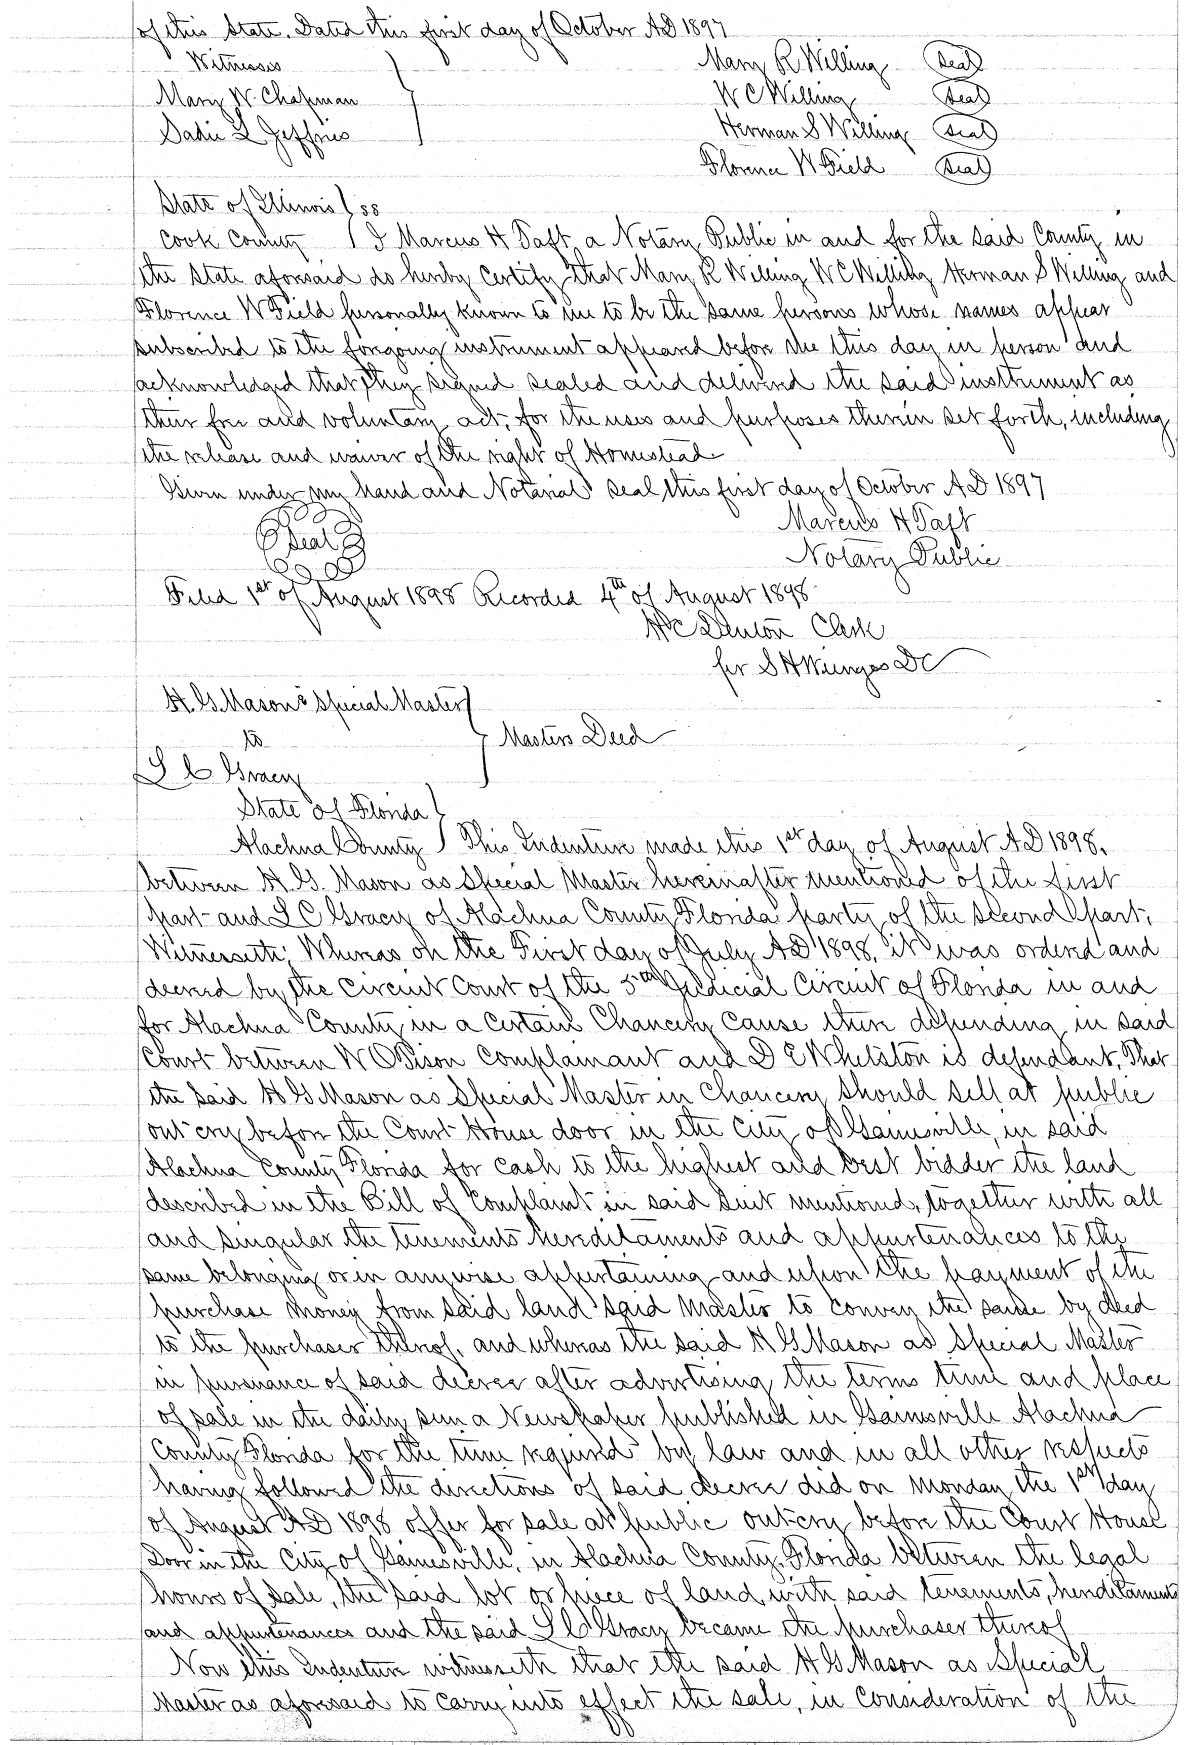 of this State. Dated this first day of October AD 1897
Witnesses
Mary R Willing Seal
Mary W. Chapman
W C Willing Seal
Sadie L Jeffries
Herman S Willing Seal
Florence W Field Seal
State of Illinois } ss
Cook County } I Marcus H Taft, a Notary Public in and for the said County in
the State aforsaid do hereby certify that Mary R Willing W C Willing Herman S Willing and
Florence W Field personally known to me to be the same persons whose names appear
subscribed to the foregoing instrument appeared before me this day in person and
acknowledged that they signed sealed and delivered the said instrument as
their free and voluntary act, for the uses and purposes therein set forth, including
the release and waiver of the right of Homestead
Given under my hand and Notarial seal this first day of October A D 1897
Marcus H Taft
Seal
Notary Public
Filed 1st of August 1898 Recorded 4th of August 1898
H C Denton Clerk
per S H Wienges DC
H. G. Mason Special Master
to } Masters Deed
L C Gracy
State of Florida }
Alachua County } This Indenture made this 1st day of August AD 1898,
between H. G. Mason as Special Master hereinafter mentioned of the first
part and L C Gracy of Alachua County Florida party of the second part,
Witnesseth; Whereas on the First day of July AD 1898, it was ordered and
decreed by the Circuit Court of the 5th Judicial Circuit of Florida in and
for Alachua County in a certain Chancery cause then depending in said
Court between W O complainant and D E Whetston is defendant. That
the said H G Mason as Special Master in Chancery should sell at public
out cry before the Court House door in the City of Gainsville, in said
Alachua County Florida for cash to the highest and best bidder the land
described in the Bill of Complaint in said suit mentioned, together with all
and singular the tenements hereditaments and appurtenances to the
same belonging or in anywise appertaining and upon the payment of the
purchase money from said land said Master to convey the same by deed
to the purchaser thereof, and whereas the said H G Mason as Special Master
in pursuance of said decree after advertising the terms time and place
of sale in the daily sun a Newspaper published in Gainsville Alachua
County Florida for the time required by law and in all other respects
having followed the directions of said decree did on Monday the 1st day
of August AD 1898 offer for sale at public outcry before the Court House
Door in the City of Gainesville, in Alachua County, Florida between the legal
hours of sale, the said lot or piece of land, with said tenements, hereditaments
and appurtenances and the said L C Gracy became the purchaser thereof
Now this Indenture witnesseth that the said H G Mason as Special
Master as aforesaid to carry into effect the sale, in consideration of the